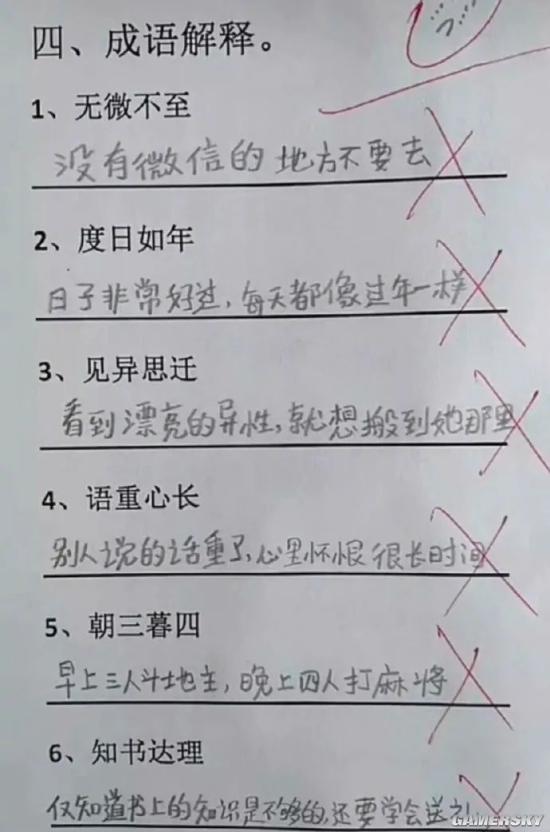 四、成语解释。
1、无微不至
没有微信的地方不要去
2、度日如年
日子非常好过，每天都像过年一样
3、见异思迁
看到漂亮的异性，就想搬到她那里
4、语重心长
别人说的话重了，心里怀恨很长时间
5、朝三暮四
早上三人斗地主，晚上四人打麻将
6、知书达理
仅知道书上的知识是不够的，还要学会送礼
GAMERSKY